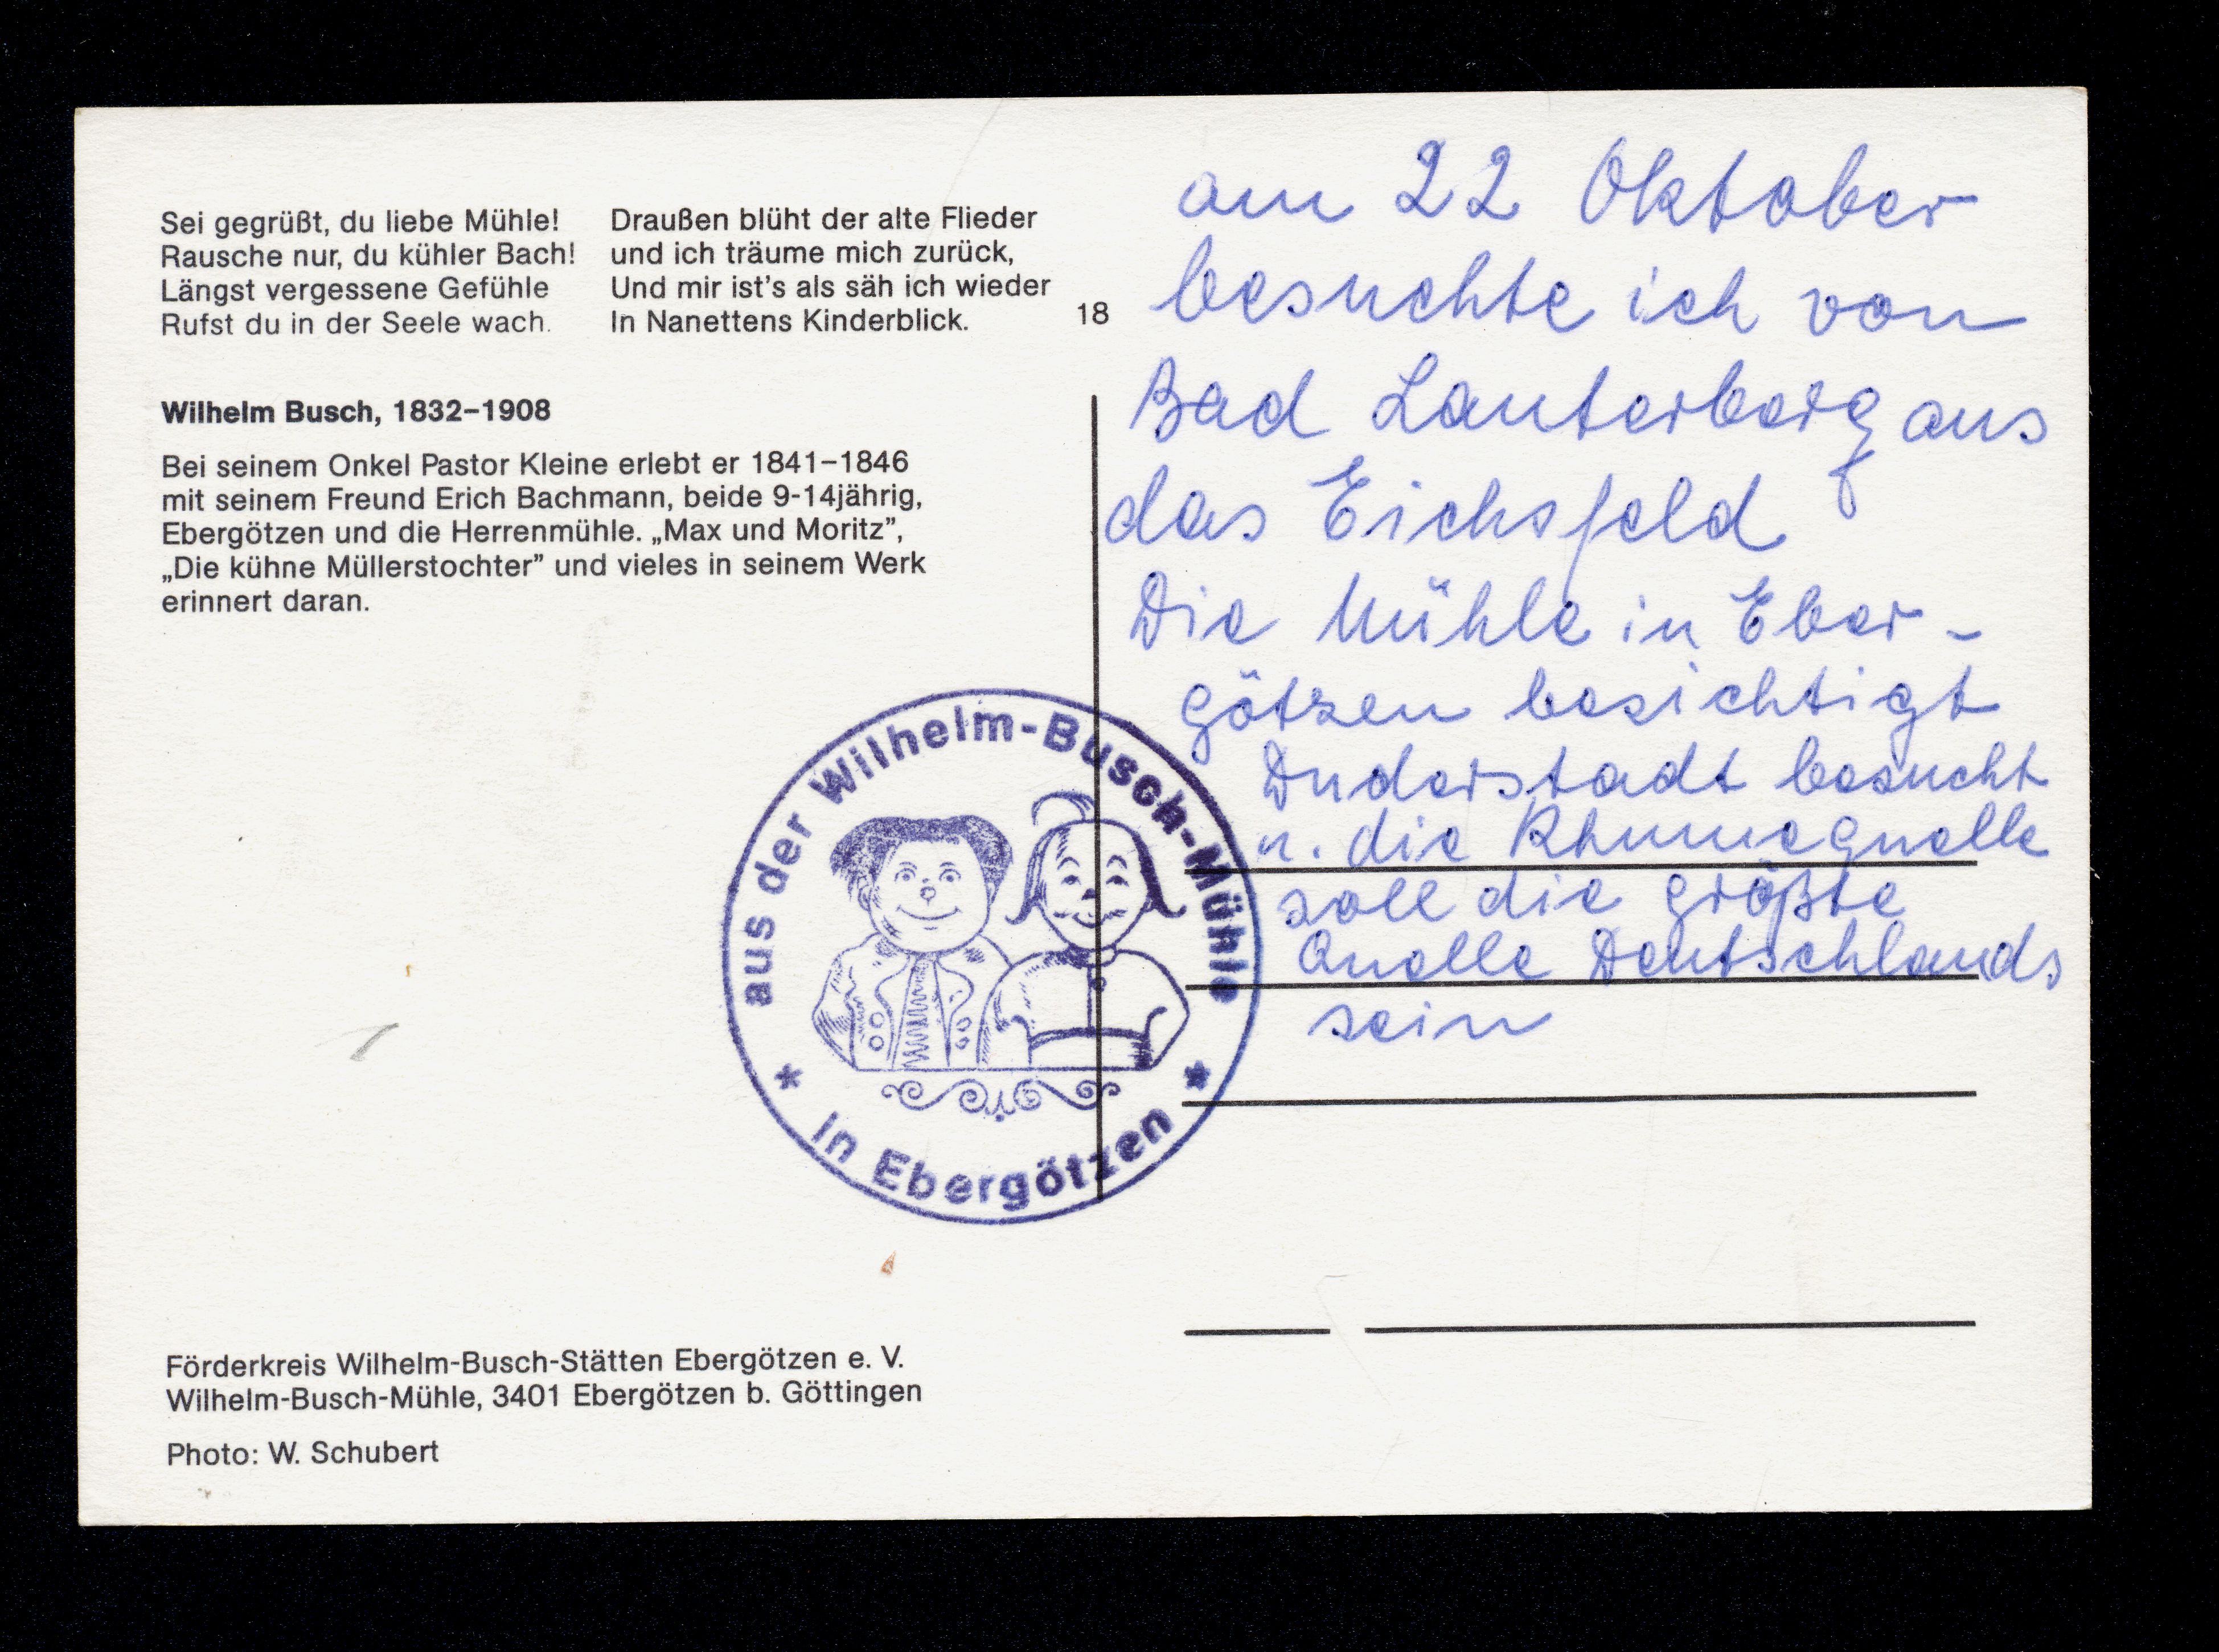 Sei gegrüßt, du liebe Mühle!
Rausche nur, du kühler Bach!
Längst vergessene Gefühle
Rufst du in der Seele wach.
Draußen blüht der alte Flieder
und ich träume mich zurück,
Und mir ist's als säh ich wieder
In Nanettens Kinderblick.
18
Wilhelm Busch, 1832–1908
Bei seinem Onkel Pastor Kleine erlebt er 1841–1846
mit seinem Freund Erich Bachmann, beide 9-14jährig,
Ebergötzen und die Herrenmühle. „Max und Moritz”,
„Die kühne Müllerstochter” und vieles in seinem Werk
erinnert daran.
aus der Wilhelm-Busch-Mühle
* in Ebergötzen *
Förderkreis Wilhelm-Busch-Stätten Ebergötzen e. V.
Wilhelm-Busch-Mühle, 3401 Ebergötzen b. Göttingen
Photo: W. Schubert
am 22 Oktober
besuchte ich von
Bad Lauterberg aus
das Eichsfeld
Die Mühle in Eber-
götzen besichtigt
Duderstadt besucht
u. die Rhumequelle
soll die größte
Quelle Deutschlands
sein